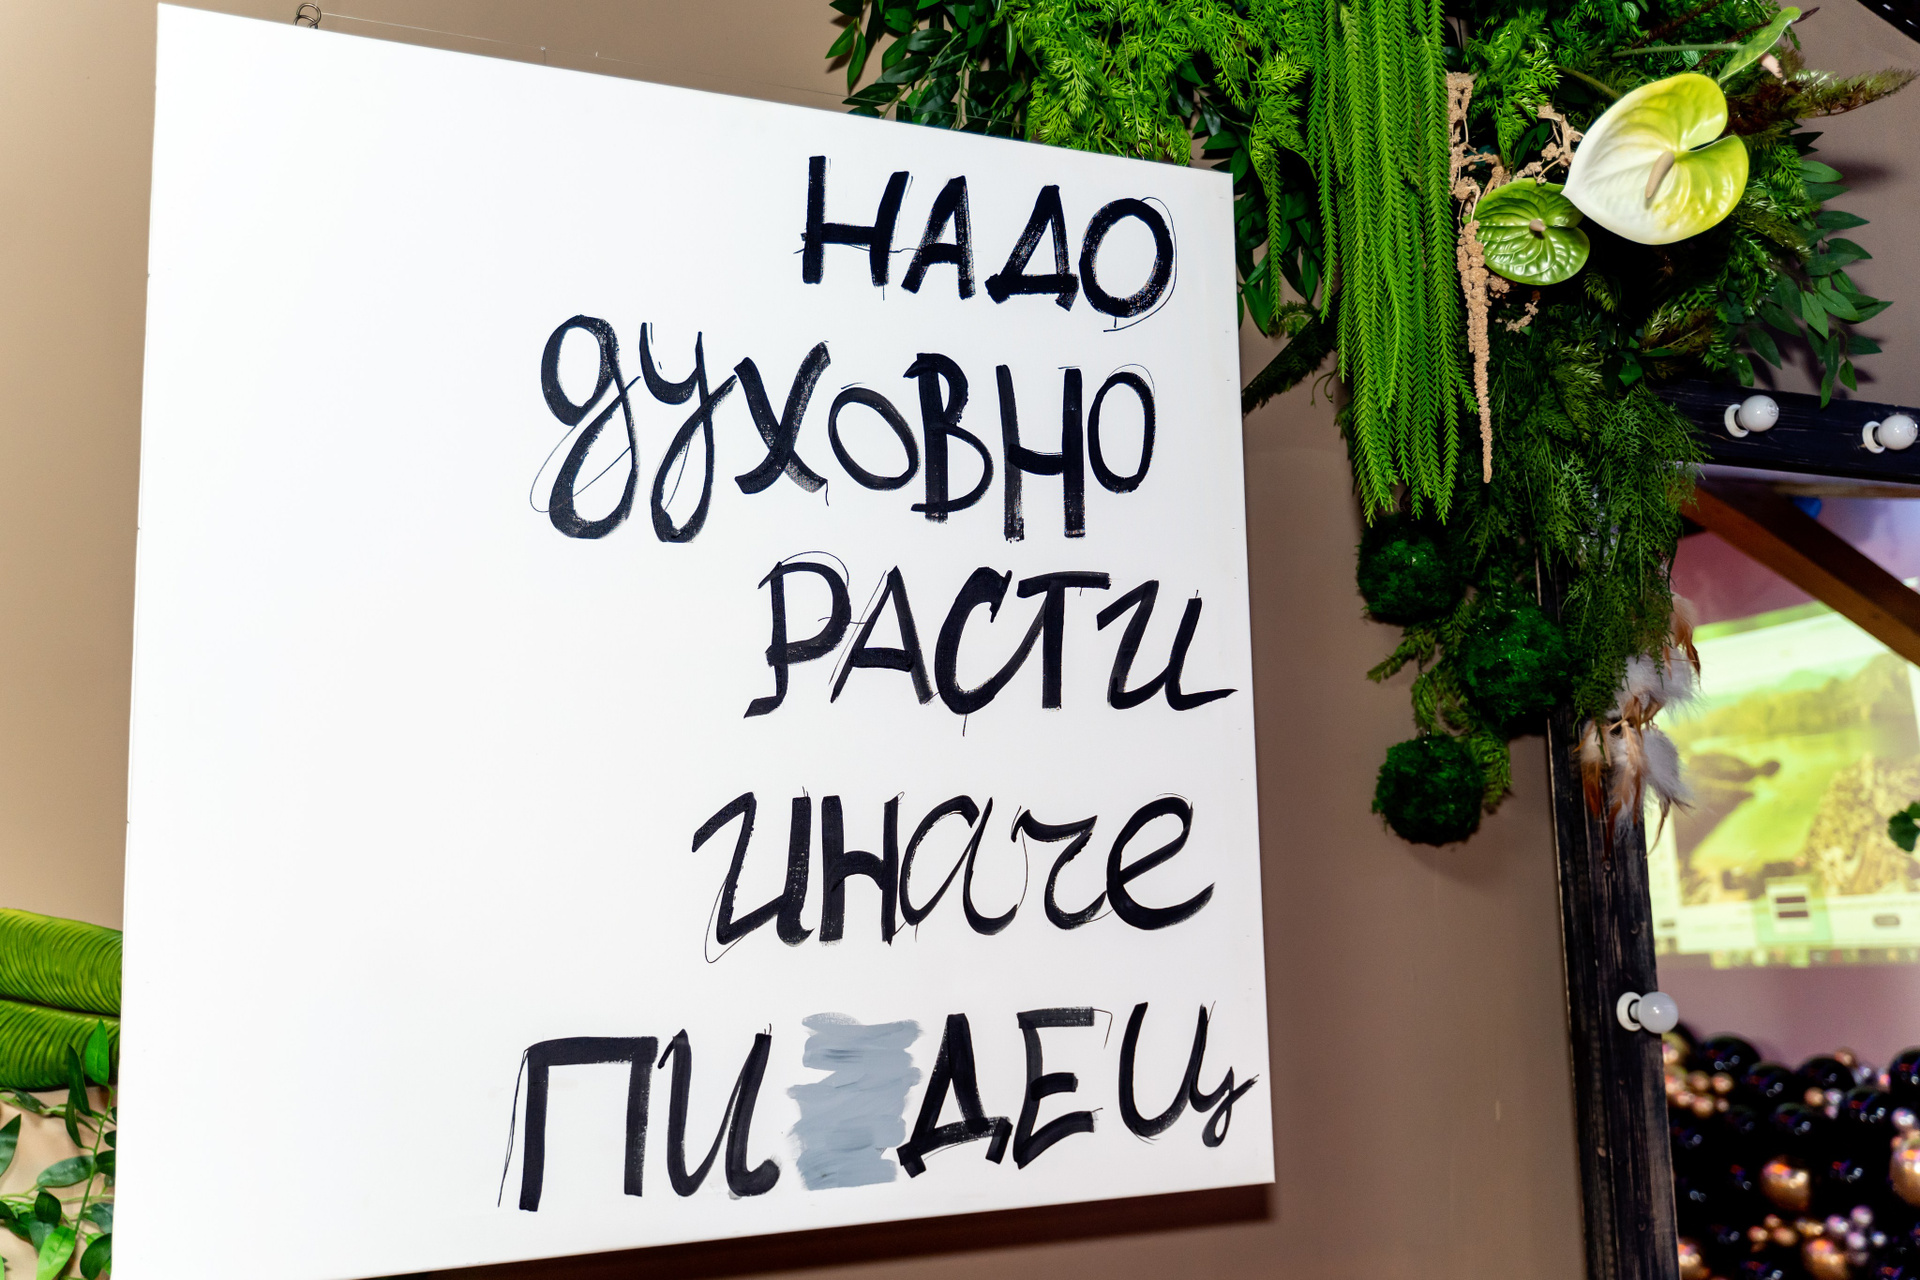 НАДО
ДУХОВНО
РАСТИ
ИНАЧЕ
ПИ ДЕЦ